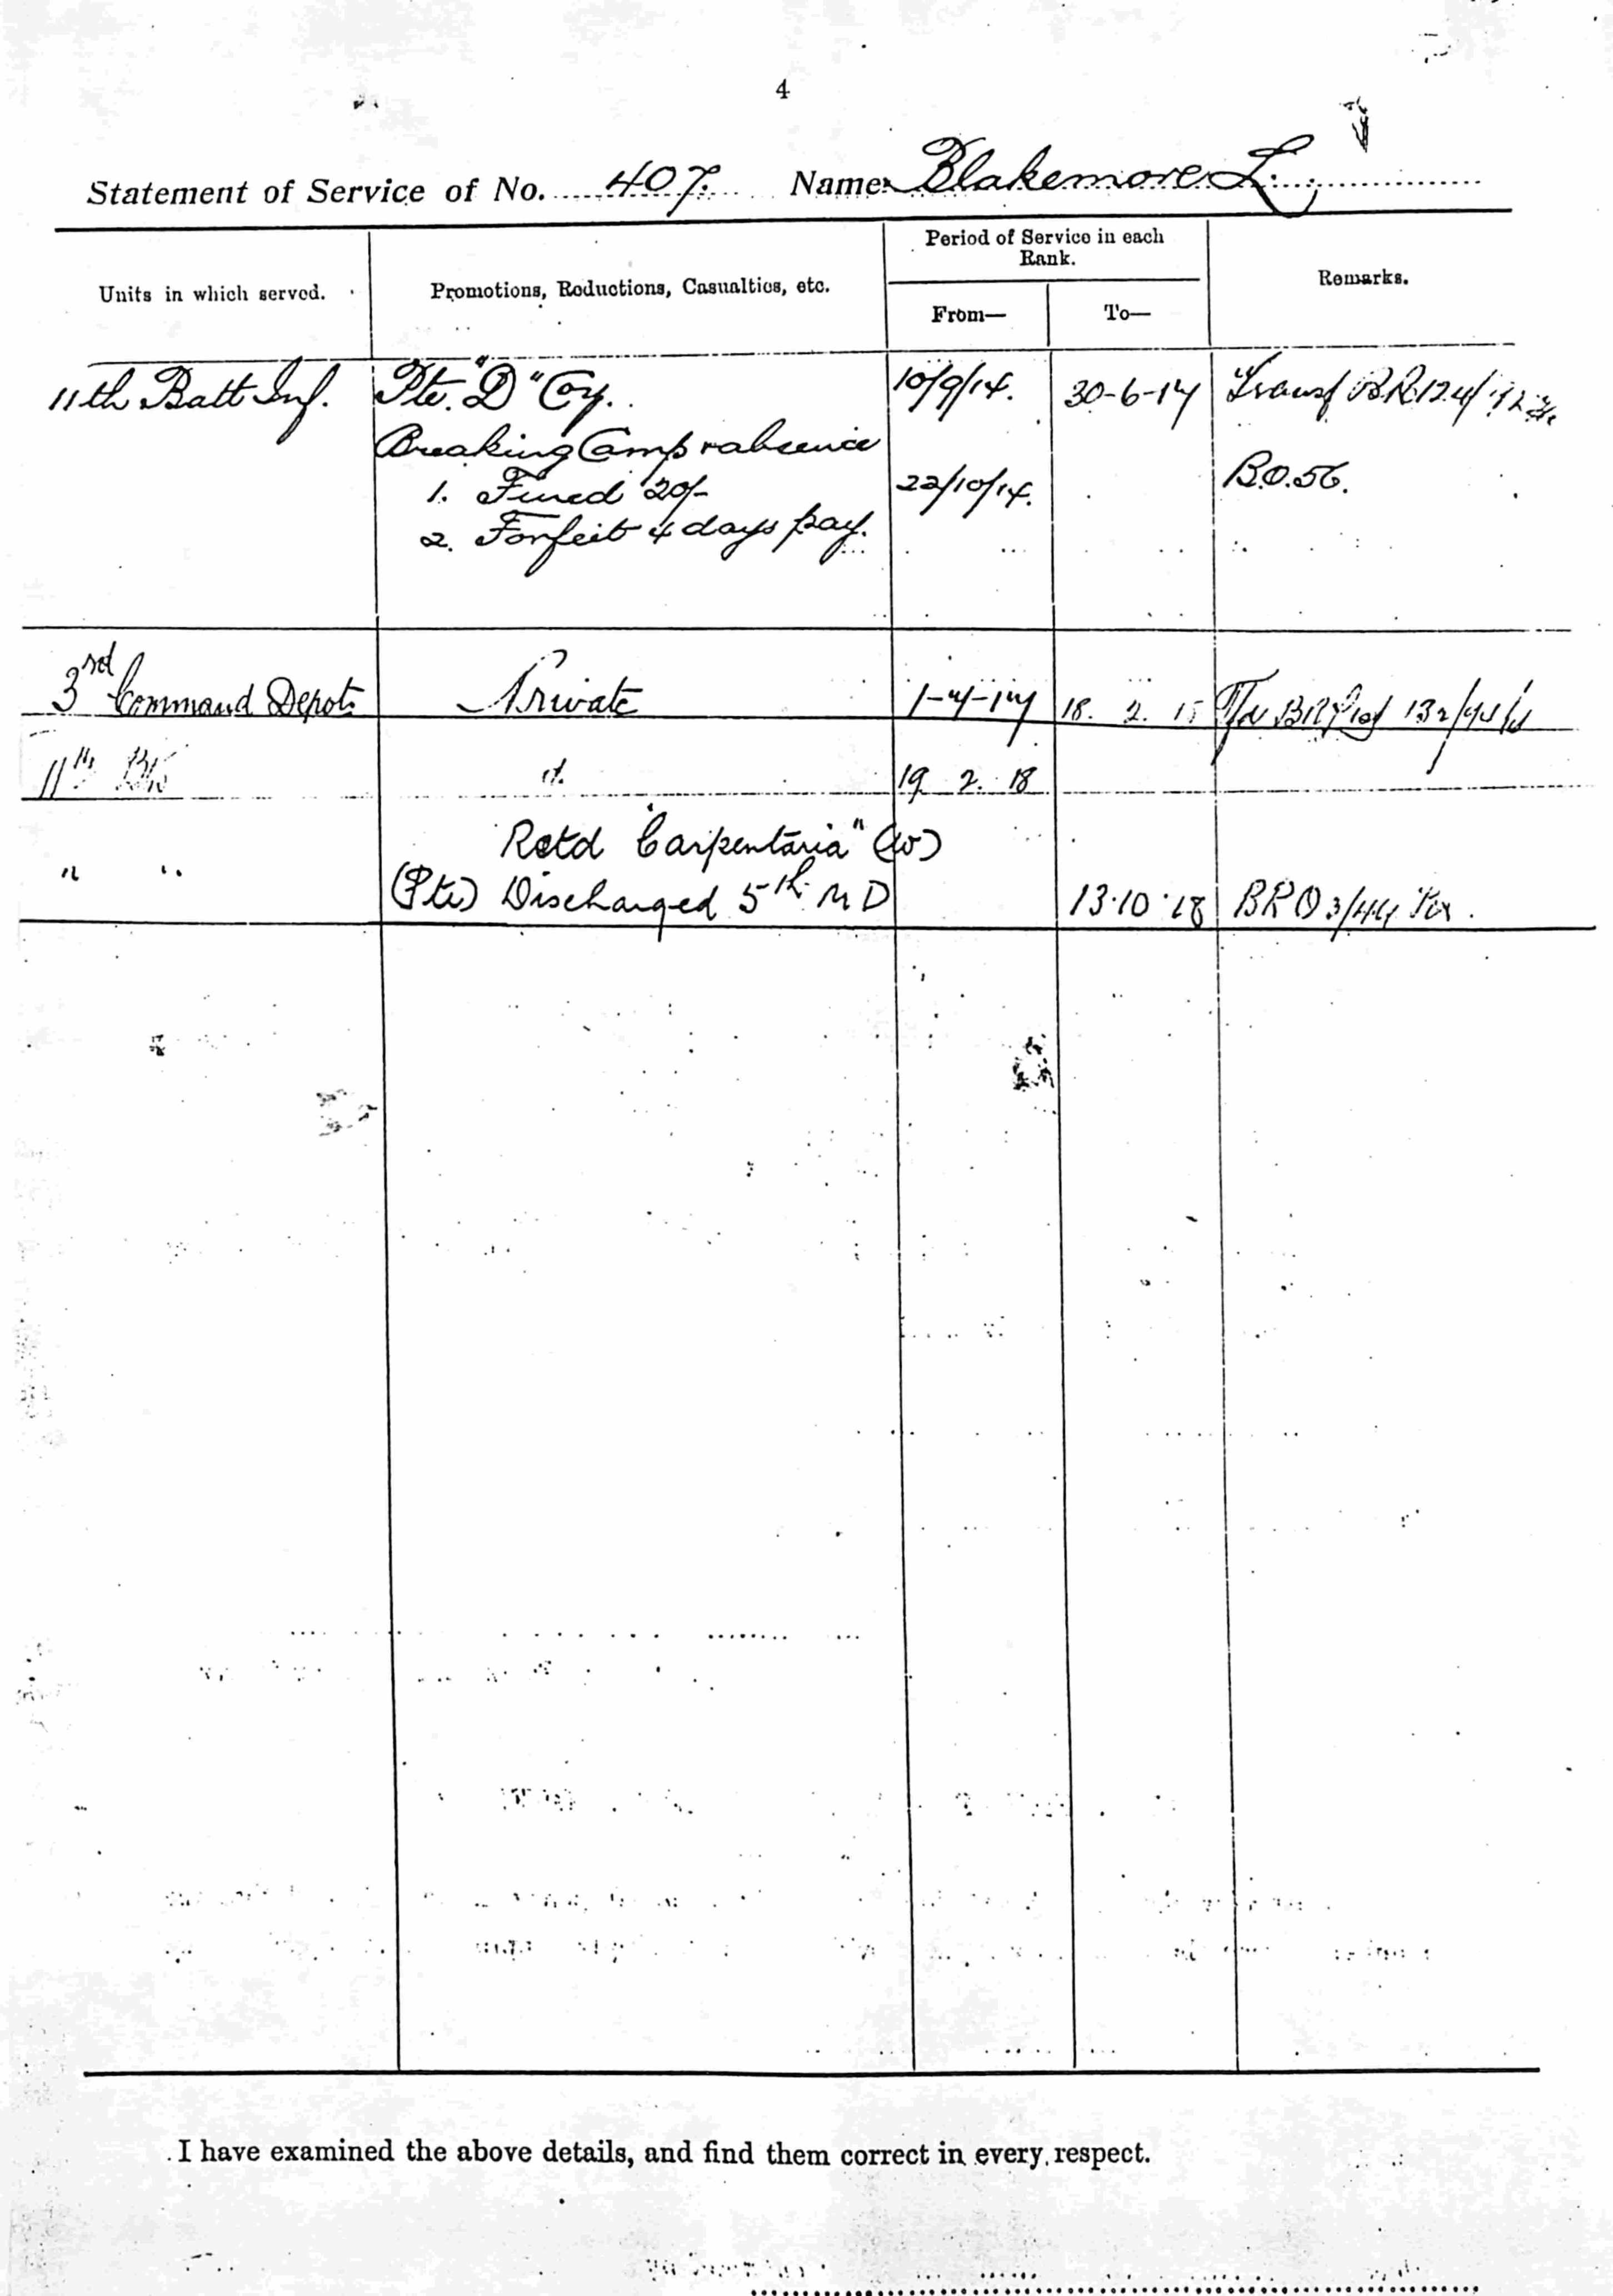 4
Statement of Service of No. 407. Name Blakemore L.
Units in which served. Promotions, Reductions, Casualties, etc. Period of Service in each Rank. From— To— Remarks.
11th Batt Inf. Pte. "D" Coy. 10/9/14. 30-6-17 Transf
Breaking Camp & absence
1. Fined 20/- 22/10/14. B.O.56.
2. Forfeit 4 days pay.
3rd Command Depot Private 1-7-17 18. 2. 18
11th Btn d. 19 2. 18
Retd "Carpentaria" (w)
" " (Pte) Discharged 5th M D 13.10.18 BRO 3/44
I have examined the above details, and find them correct in every respect.